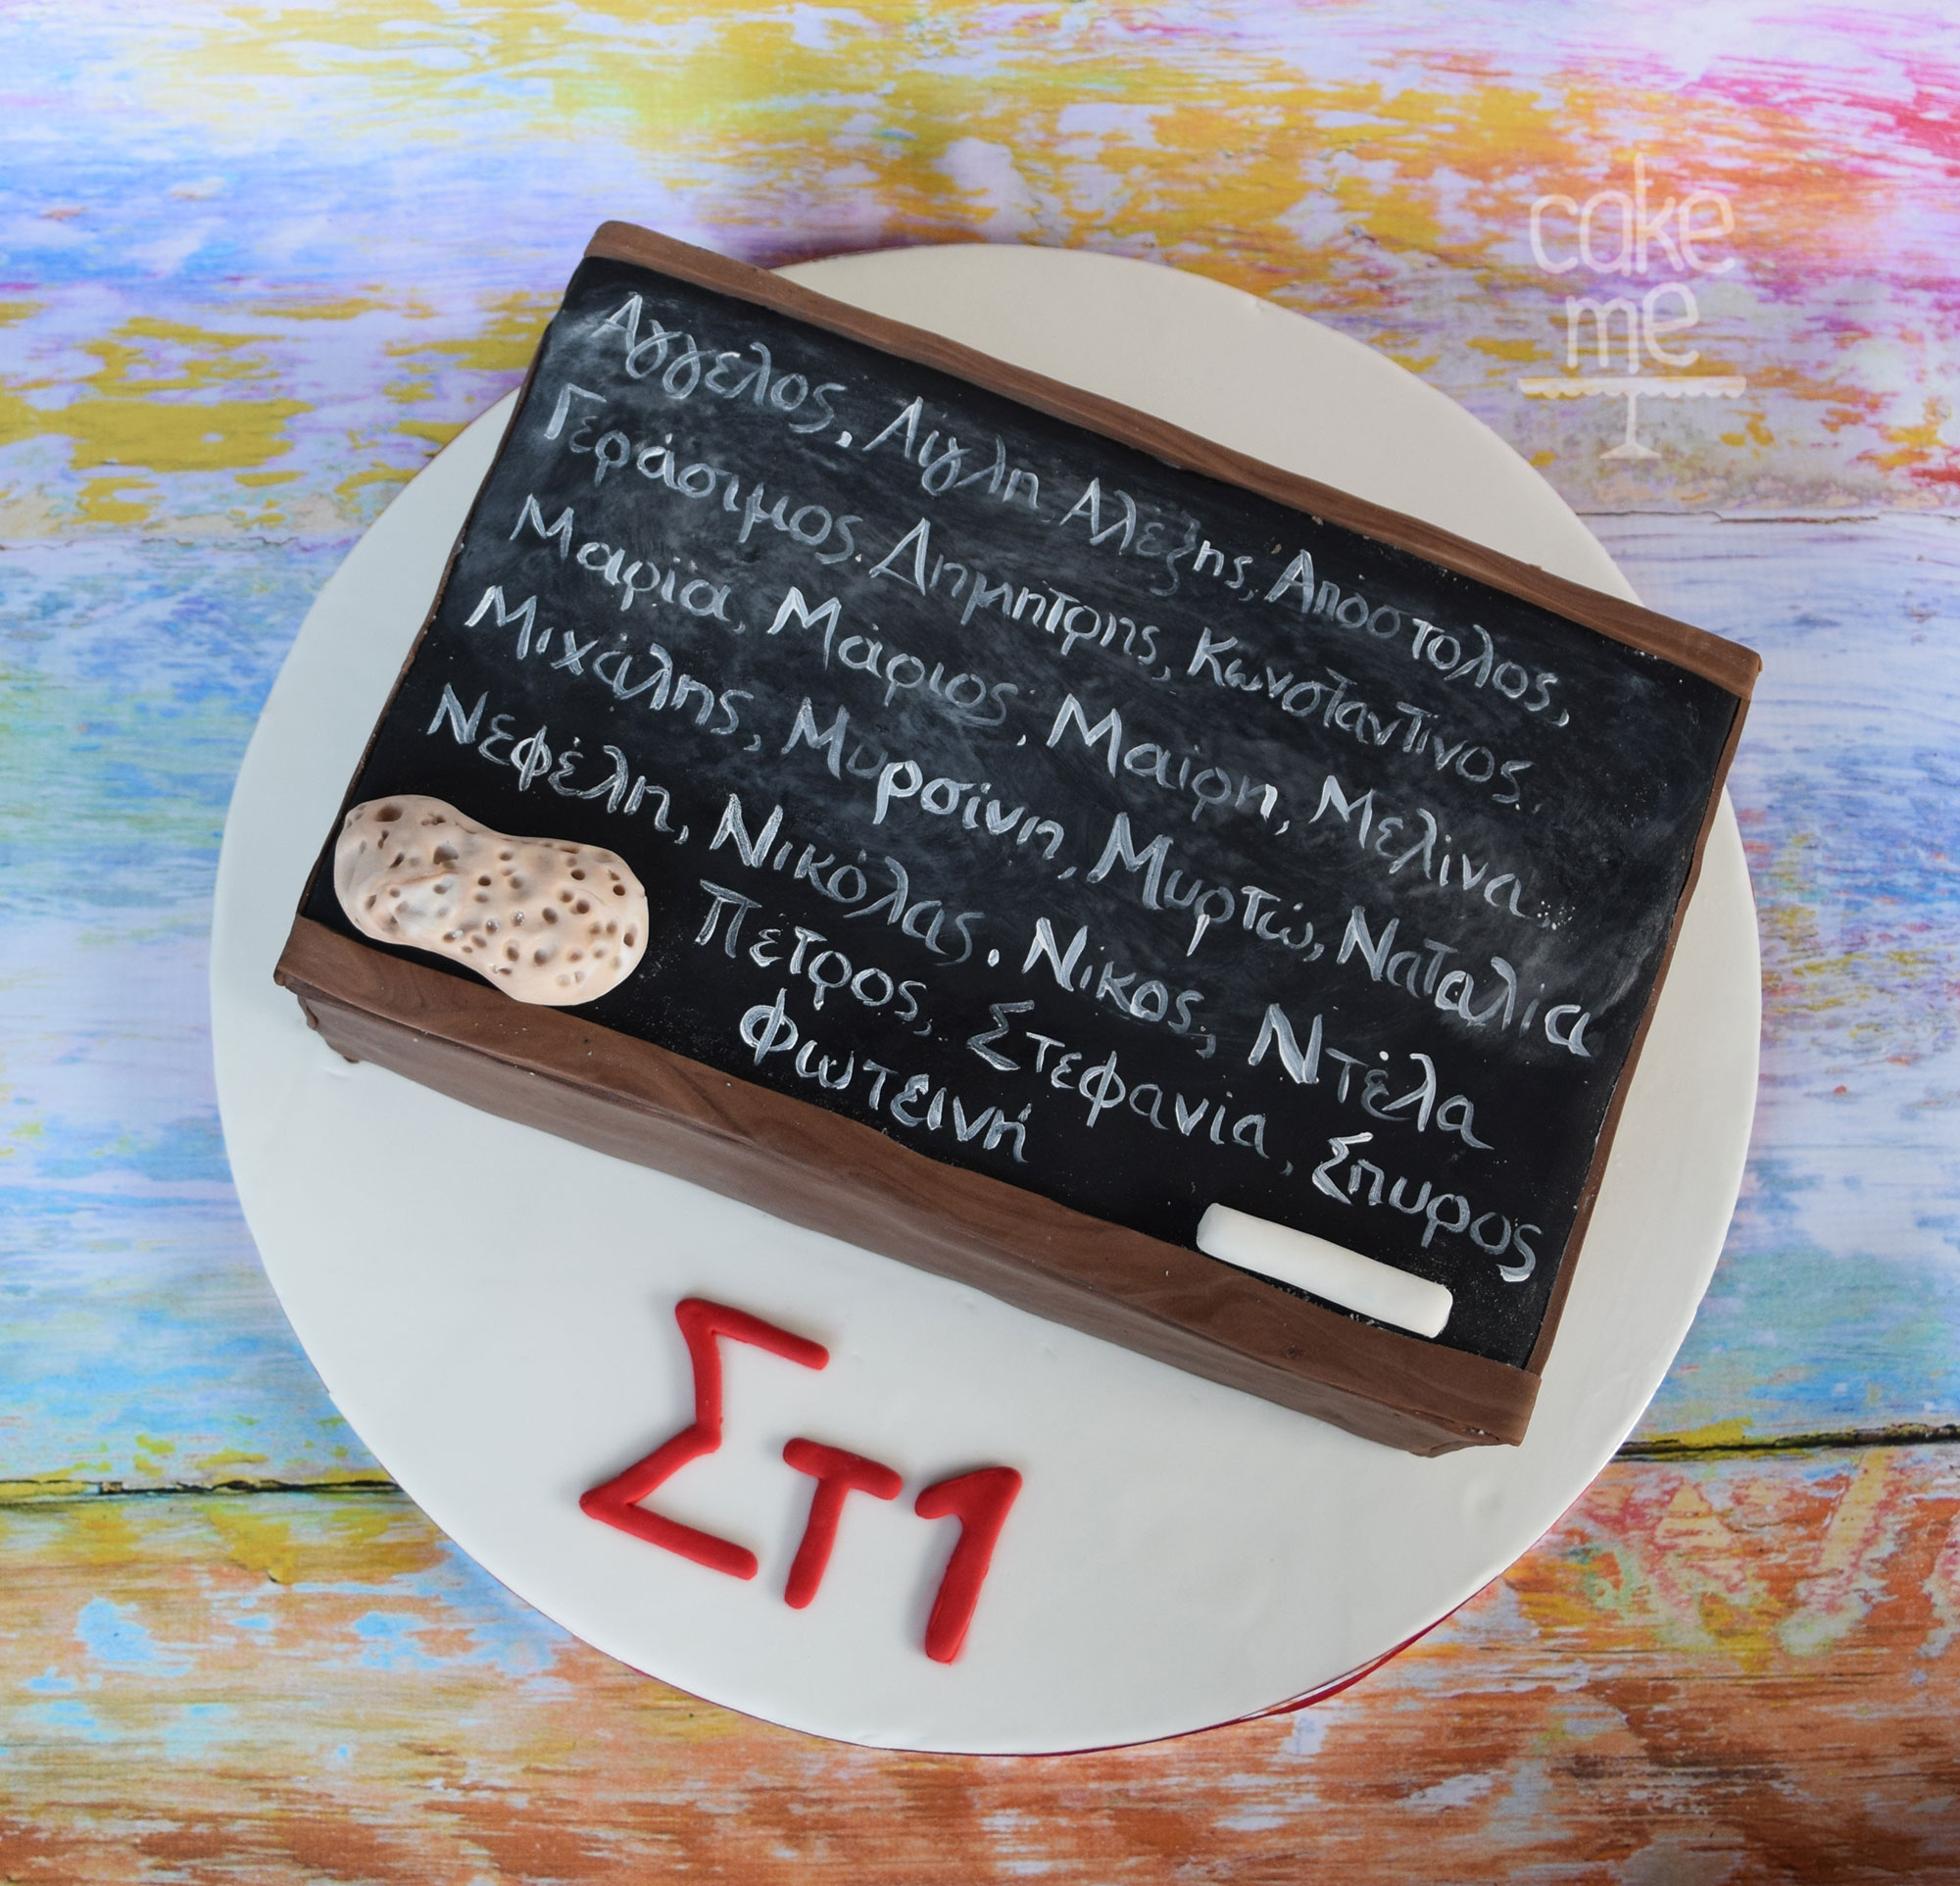 cake
me
Άγγελος, Αιγλη Αλέξης, Αποστολος,
Γεράσιμος. Δημητρης, Κωνσταντίνος.
Μαρία, Μάριος, Μαίρη, Μελίνα.
Μιχάλης, Μυρσίνη, Μυρτώ, Ναταλία
Νεφέλη, Νικόλας. Νίκος, Ντέλα
Πέτρος, Στεφανία, Σπυρος
Φωτεινή
Στ1